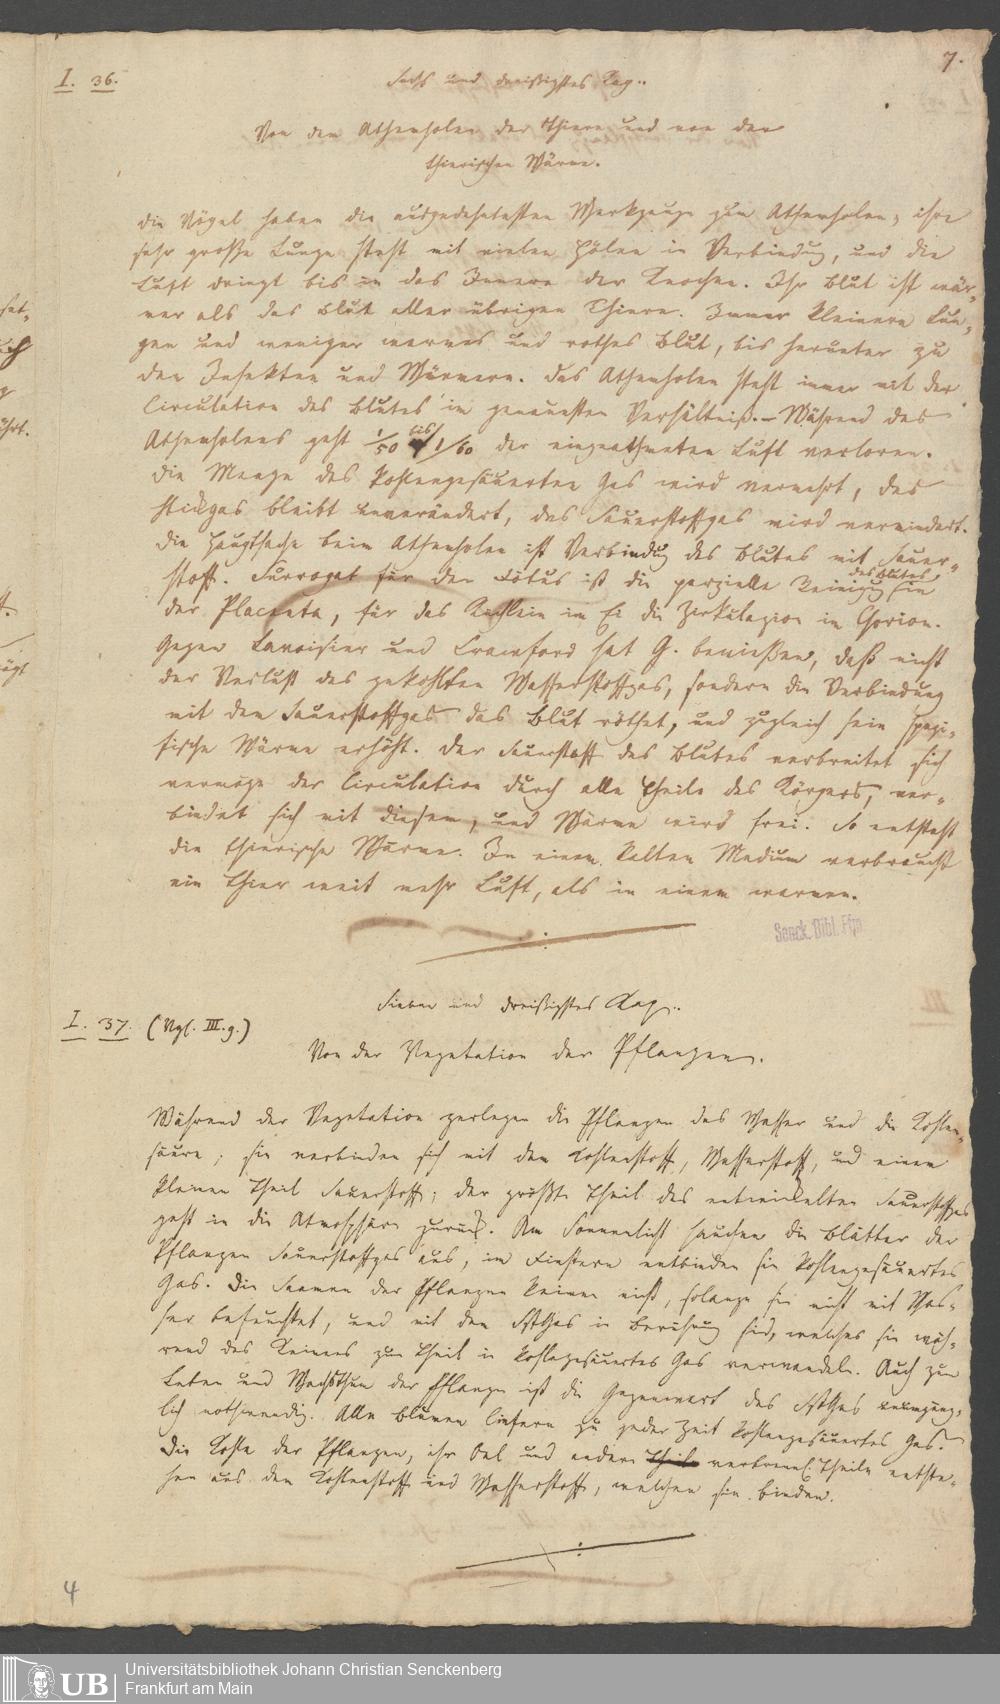 7.
I. 36.
Sechs und dreißigstes Kap..
Von dem Athemholen der Thiere und von der
thierischen Wärme.
Die Vögel haben die ausgedehntesten Werkzeuge zum Athemholen; ihre
sehr große Lunge steht mit vielen Hölen in Verbindung, und die
Luft dringt bis in das Innere der Knochen. Ihr Blut ist wär-
mer als das Blut aller übrigen Thiere. Immer kleinere Lun-
gen und weniger warmes und rothes Blut, bis herunter zu
den Insekten und Würmern. Das Athemholen steht immer mit der
Circulation des Blutes in genauesten Verhältniß. – Während des
Athemholens geht 1/50 bis 1/60 der eingeathmeten Luft verloren.
Die Menge des kohlengesäuerten Gas wird vermehrt, das
Stickgas bleibt unverändert, das Sauerstoffgas wird vermindert.
Die Hauptsache beim Athemholen ist Verbindung des Blutes mit Sauer-
stoff. Surrogat für den Fötus ist die partielle Reinigung des Blutes in
der Placenta, für das Küchlein im Ei die Zirkulazion im Chorion.
Gegen Lavoisier und Crawford hat G. bewiesen, daß nicht
der Verlust des gekohlten Wasserstoffgas, sondern die Verbindung
mit dem Sauerstoffgas das Blut röthet, und zugleich sein spezi-
fische Wärme erhöht. Der Sauerstoff des Blutes verbreitet sich
vermöge der Circulation durch alle Theile des Körpers, ver-
bindet sich mit diesem, und Wärme wird frei. So entsteht
die thierische Wärme. In einem kalten Medium verbraucht
ein Thier weit mehr Luft, als in einem warmen.
Senck. Bibl. Ffm
Sieben und dreißigstes Kap..
I. 37. (Vgl. III. g.)
Von der Vegetation der Pflanzen.
Während der Vegetation zerlegen die Pflanzen das Wasser und die Kohlen-
säure; sie verbinden sich mit dem Kohlenstoff, Wasserstoff, und einem
kleinen Theil Sauerstoff; der größte Theil des entwickelten Sauerstoffgas
geht in die Atmosphäre zurück. Am Sonnenlicht hauchen die Blätter der
Pflanzen Sauerstoffgas aus, im Finstern entbinden sie kohlengesäuertes
Gas. Die Saamen der Pflanzen keimen nicht, solange sie nicht mit Was-
ser befeuchtet, und mit dem StGas in Berührung sind, welches sie wäh-
rend des Keimens zum Theil in kohlengesäuertes Gas verwandeln. Auch zum
Leben und Wachsthum der Pflanze ist die Gegenwart des StGas unumgäng-
lich nothwendig. Alle Blumen liefern zu jeder Zeit kohlengesäuertes Gas.
Die Kohle der Pflanzen, ihr Oel und andere verbrennl. Theile entste-
hen aus dem Kohlenstoff und Wasserstoff, welchen sie binden.
4
UB
Universitätsbibliothek Johann Christian Senckenberg
Frankfurt am Main